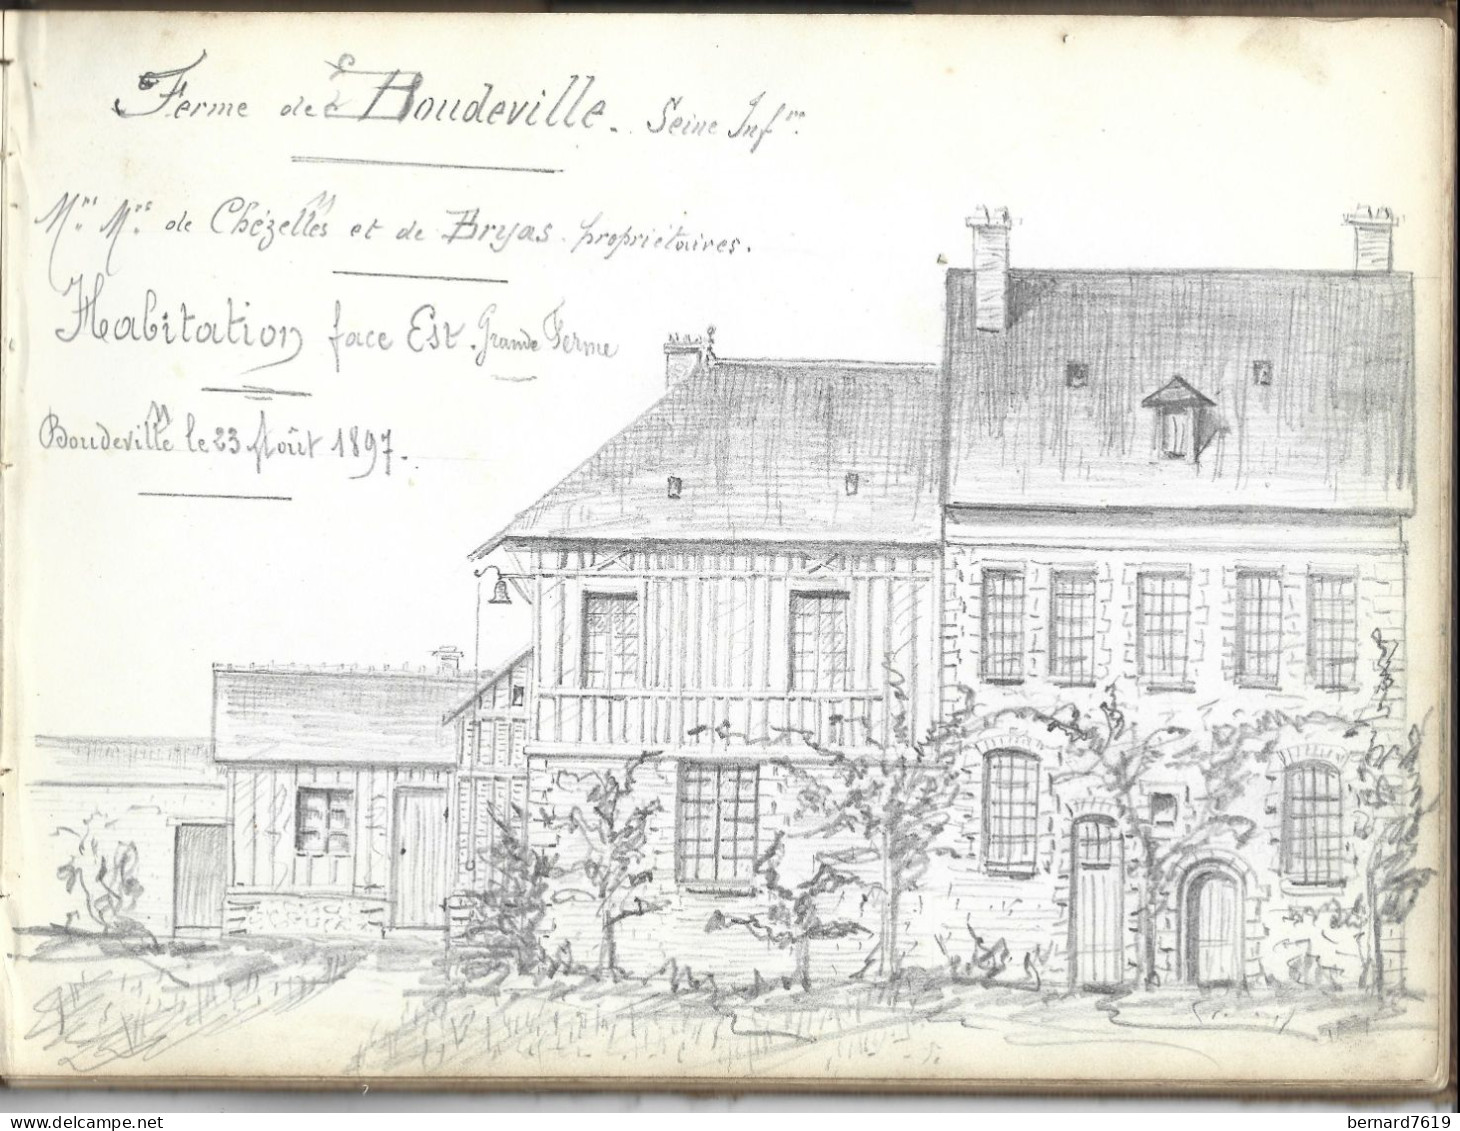 Ferme de Boudeville. Seine Infre.
Mrs. Mrs. de Chézelles et de Bryas. propriétaires.
Habitation face Est. Grande Ferme
Boudeville le 23 Août 1897.
bernard7619